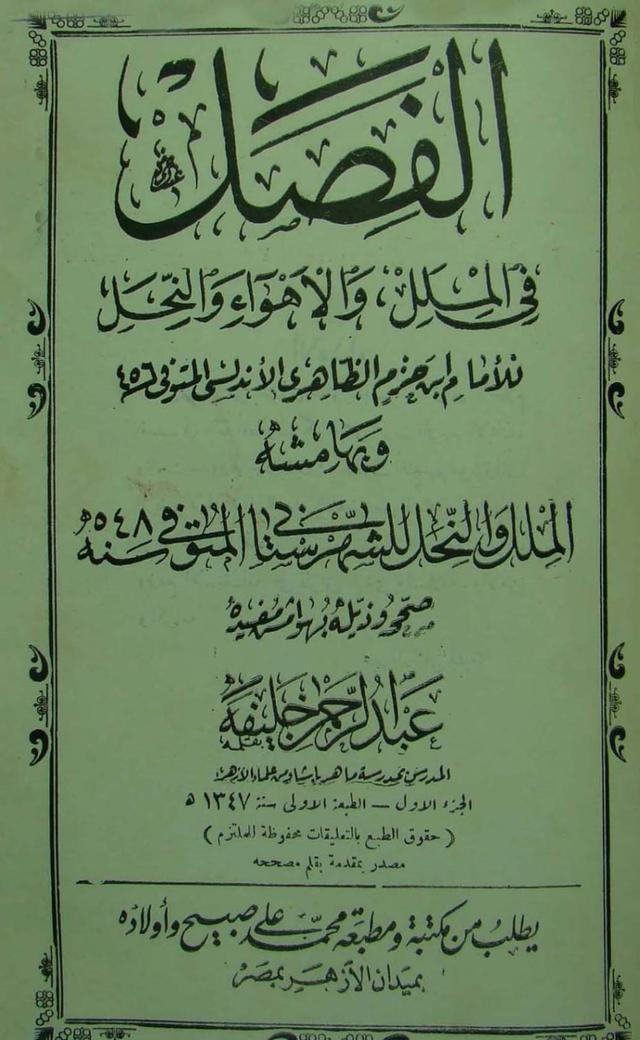 الفصل
في الملل، والأهواء والنحل
للأمام ابن حزم الظاهرى الأندلسى المتوفى ٤٥٦
وبهامشه
الملل والنحل للشهرستانى المتوفى سنة ٥٤٨ ه
صححه وذيله بهوامش مفيده
عبد الرحمن خليفه
المدرس بمدرسة ماهر باشا ومن علماء الأزهر
الجزء الاول — الطبعة الاولى سنة ١٣٤٧ ه
( حقوق الطبع بالتعليقات محفوظة للملتزم )
مصدر بمقدمة بقلم مصححه
يطلب من مكتبة ومطبعة محمد على صبيح وأولاده
بميدان الأزهر بمصر